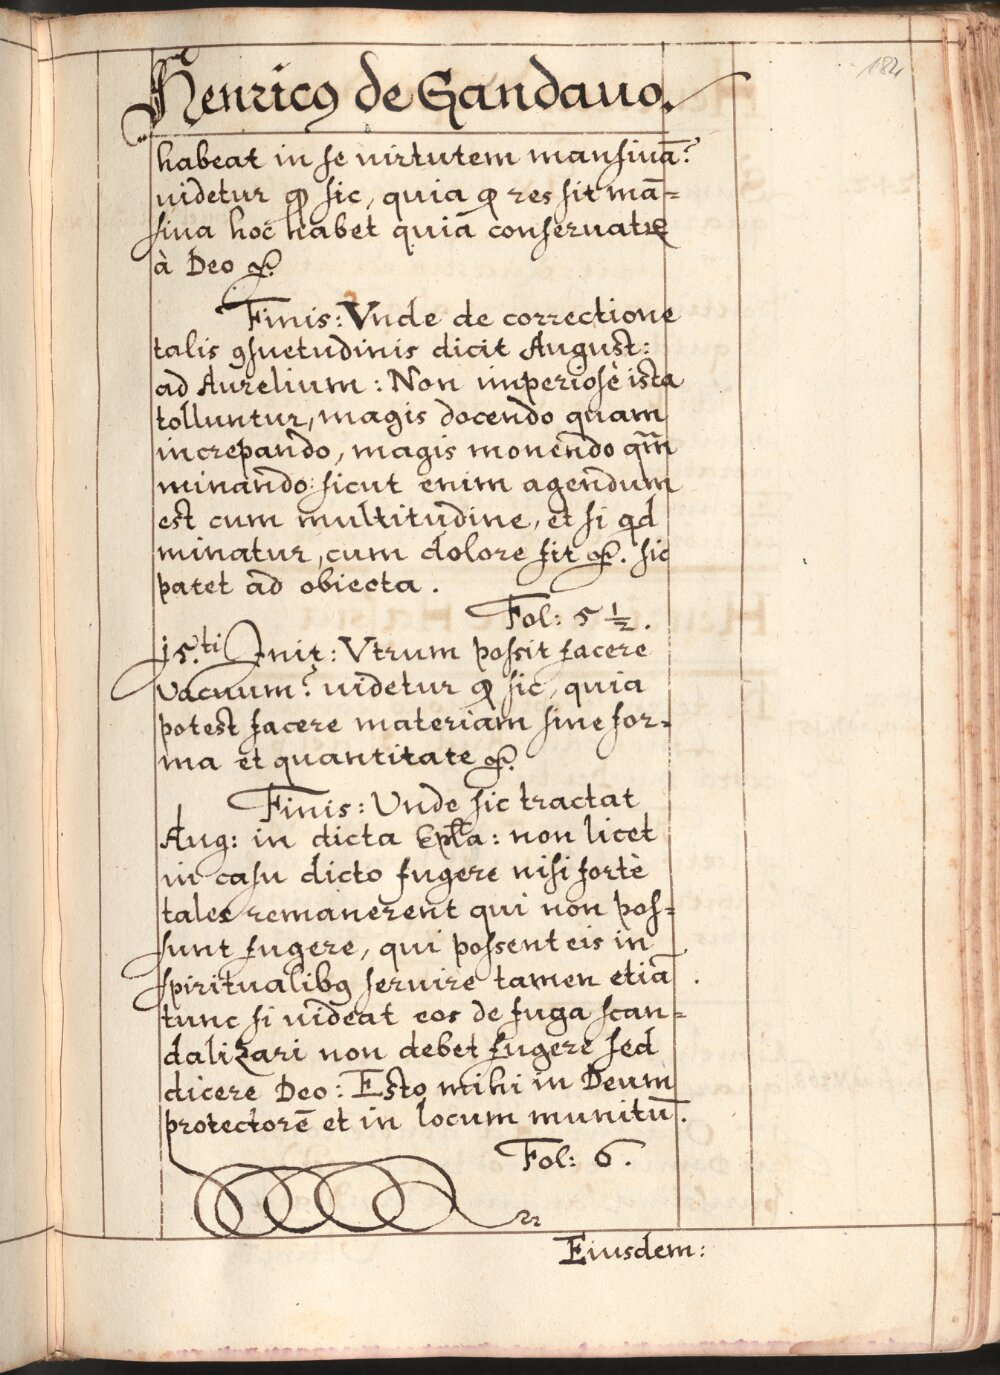 184
Henricꝯ de Gandauo.
habeat in se virtutem mansiuā?
videtur ꝙ sic, quia ꝙ res sit mā=
siua hoc habet quia conseruatꝛ
à Deo &.
Finis: Vnde de correctione
talis ꝯsuetudinis dicit August:
ad Aurelium: Non imperiosè ista
tolluntur, magis docendo quam
increpando, magis monendo qm̄
minando: sicut enim agendum
est cum multitudine, et si qd
minatur, cum dolore fit &. sic
patet ad obiecta.
Fol: 5 ½.
15.ti Init: Vtrum possit facere
vacuum? videtur ꝙ sic, quia
potest facere materiam sine for=
ma et quantitate &.
Finis: Unde sic tractat
Aug: in dicta Ep̄la: non licet
in casu dicto fugere nisi fortè
tales remanerent qui non pos=
sunt fugere, qui possent eis in
spiritualibꝯ seruire tamen etiā
tunc si videat eos de fuga scan=
dalizari non debet fugere sed
dicere Deo: Esto mihi in Deum
protectorē et in locum munitū.
Fol: 6.
Eiusdem: